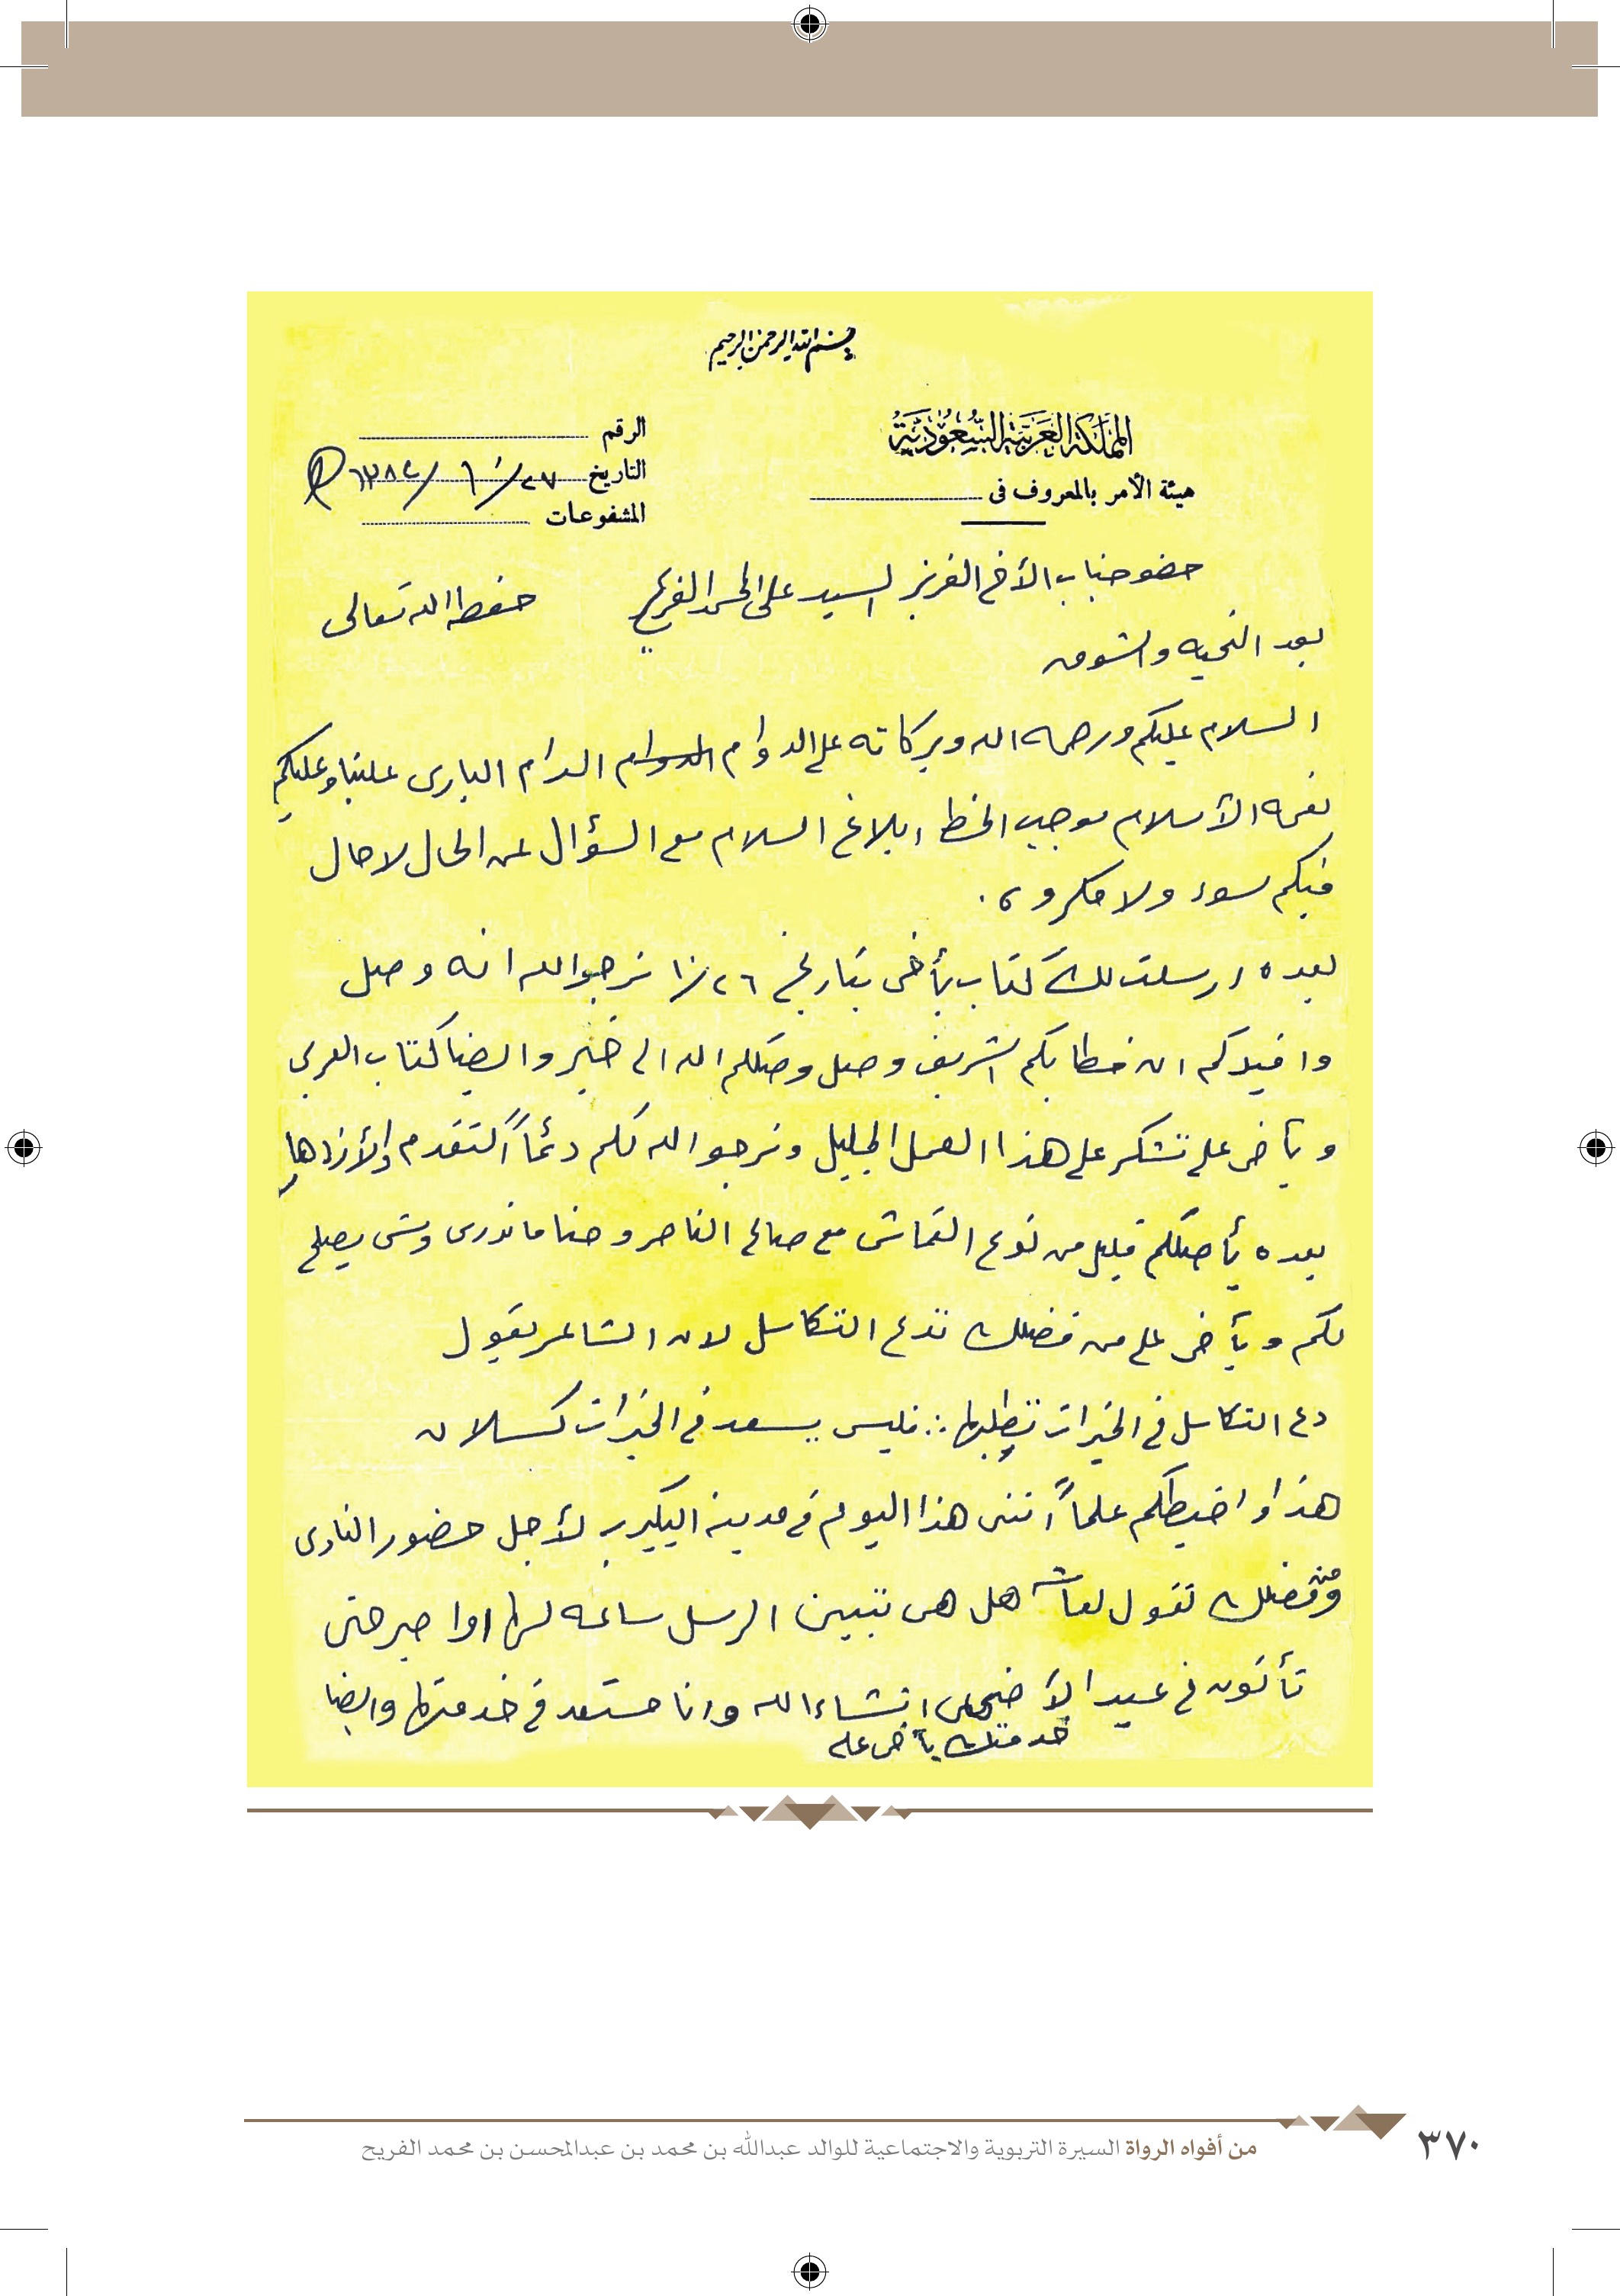 بسم الله الرحمن الرحيم
المملكة العربية السعودية
هيئة الأمر بالمعروف فى
الرقم
التاريخ ٢٧/١٠/١٣٨٤ هـ
المشفوعات
حضو جناب الأخ العزيز السيد على المحمد الفريح حفظه الله تعالى
بعد التحيه والشوق
السلام عليكم ورحمه الله وبركاته على الدوام ادام البارى علينا وعليكم
نعمه الأسلام موجب الخط ابلاغ السلام مع السؤال عن الحال لاحال
فيكم سوء ولا مكروه .
بعده ارسلت لك كتاب يأخى بتاريخ ١٠/٢٦ نرجوا الله انه وصل
وافيدكم ان خطابكم الشريف وصل وصلكم الله الى خير وايضا كتاب العربى
ويأخى على نتشكر على هذا العمل الجليل ونرجوا الله لكم دئماً التقدم والأزدهار
بعده يأصلكم قليل من نوع القماش مع صالح الناصر وحنا ماندرى وش يصلح
لكم ويأخى على من فضلك تدع التكاسل لان الشاعر يقول
دع التكاسل فى الخيرات تطلبها ∴ فليس يسعد فى الخيرات كسلان
هذا واحيطكم علماً اننى هذا اليوم فى مدينه البكيريه لأجل حضور النادى
ومن فضلك تقول هل هى تبين ارسل ساعه لها اوا صبر حتى
تأتون فى عيد الأضحى انشاء الله وانا مستعد فى خدمتها وايضا
خدمتك يأخى على
من أفواه الرواة السيرة التربوية والاجتماعية للوالد عبدالله بن محمد بن عبدالمحسن بن محمد الفريح
٣٧٠